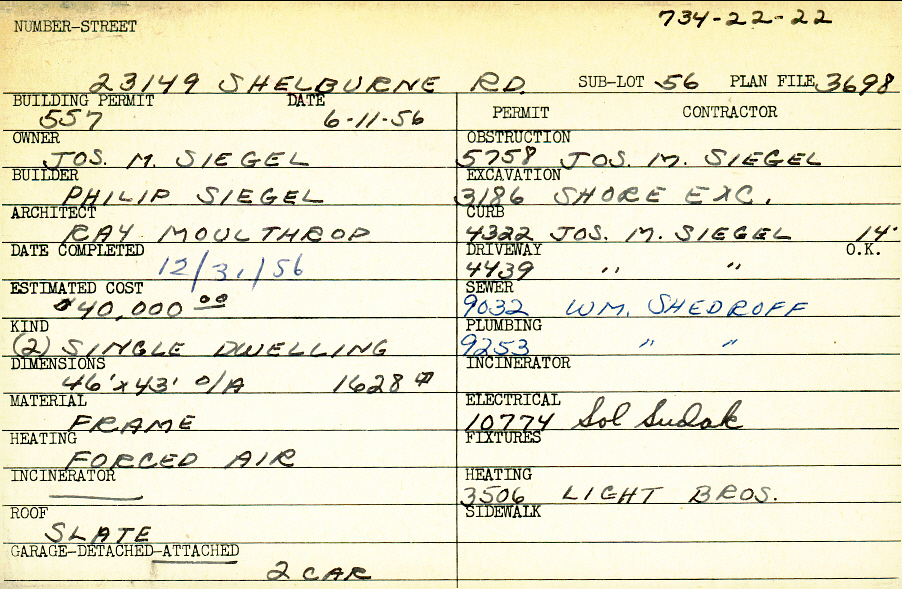 NUMBER-STREET 734-22-22
23149 SHELBURNE RD. SUB-LOT 56 PLAN FILE 3698
BUILDING PERMIT DATE
557 6-11-56
PERMIT CONTRACTOR
OWNER
JOS. M. SIEGEL
OBSTRUCTION
5758 JOS. M. SIEGEL
BUILDER
PHILIP SIEGEL
EXCAVATION
3186 SHORE EXC.
ARCHITECT
RAY MOULTHROP
CURB
4322 JOS. M. SIEGEL 14'
DATE COMPLETED
12/31/56
DRIVEWAY O.K.
4439 " "
ESTIMATED COST
$40,000 00
SEWER
9032 WM. SHEDROFF
KIND
(2) SINGLE DWELLING
PLUMBING
9253 " "
DIMENSIONS
46' x 43' O/A 1628 #
INCINERATOR
MATERIAL
FRAME
ELECTRICAL
10774 Sol Sudak
HEATING
FORCED AIR
FIXTURES
INCINERATOR
HEATING
3506 LIGHT BROS.
ROOF
SLATE
SIDEWALK
GARAGE-DETACHED-ATTACHED
2 CAR